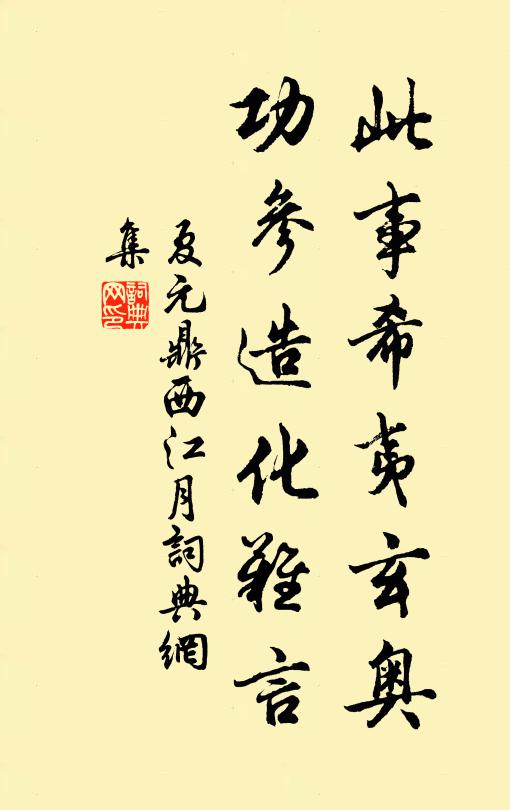 此事希夷玄奥
功參造化難言
夏元鼎西江月詞典網
集
詞典
网印